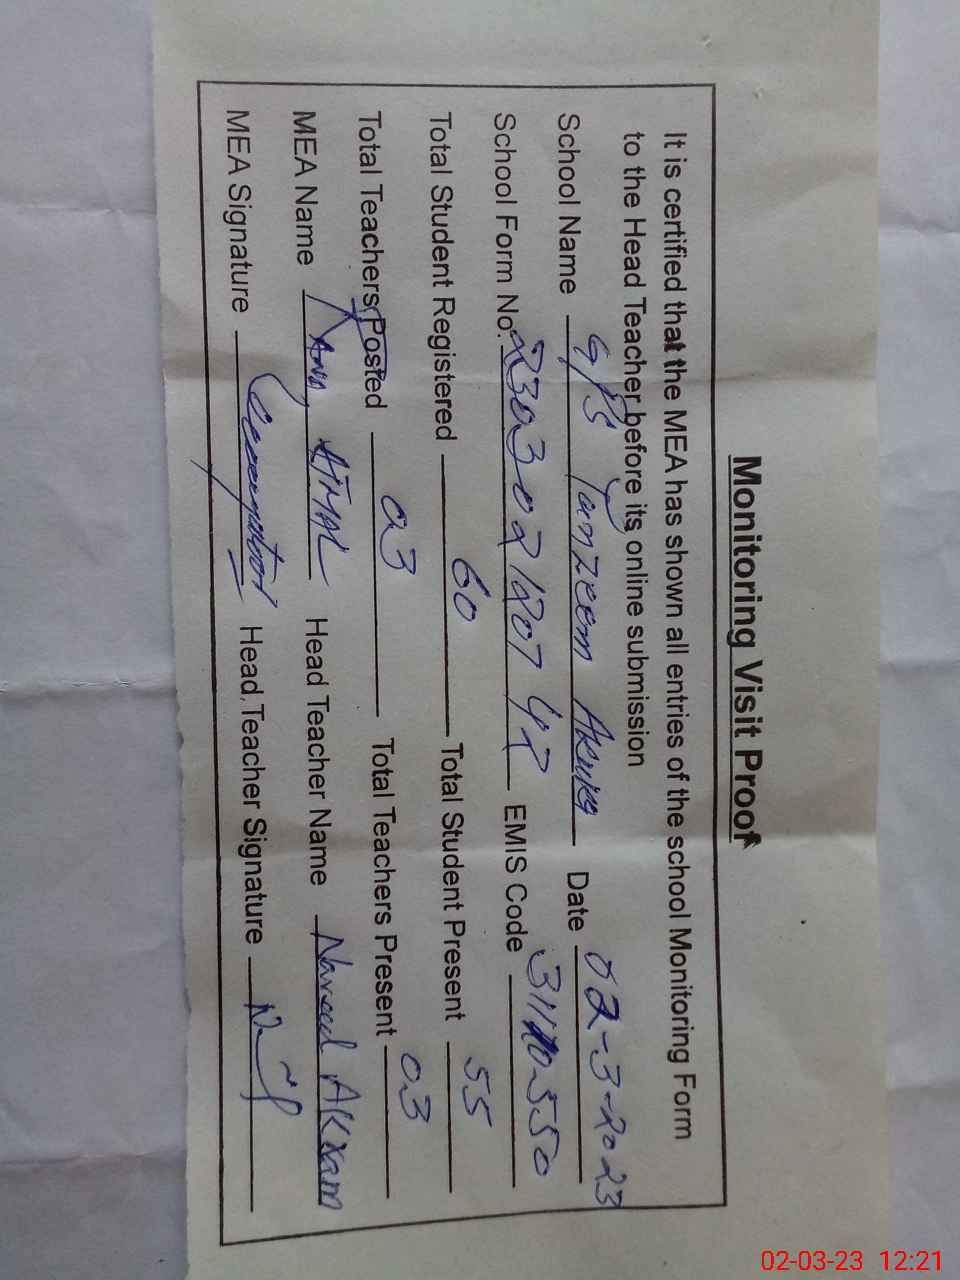 Monitoring Visit Proof
It is certified that the MEA has shown all entries of the school Monitoring Form
to the Head Teacher before its online submission
School Name GPS Tanzeem Date 02-3-2023
School Form No. 2303021207 42 EMIS Code 31110550
Total Student Registered 60 Total Student Present 55
Total Teachers Posted 03 Total Teachers Present 03
MEA Name AJMAL Head Teacher Name Naveed AKRAM
MEA Signature Head Teacher Signature
02-03-23 12:21